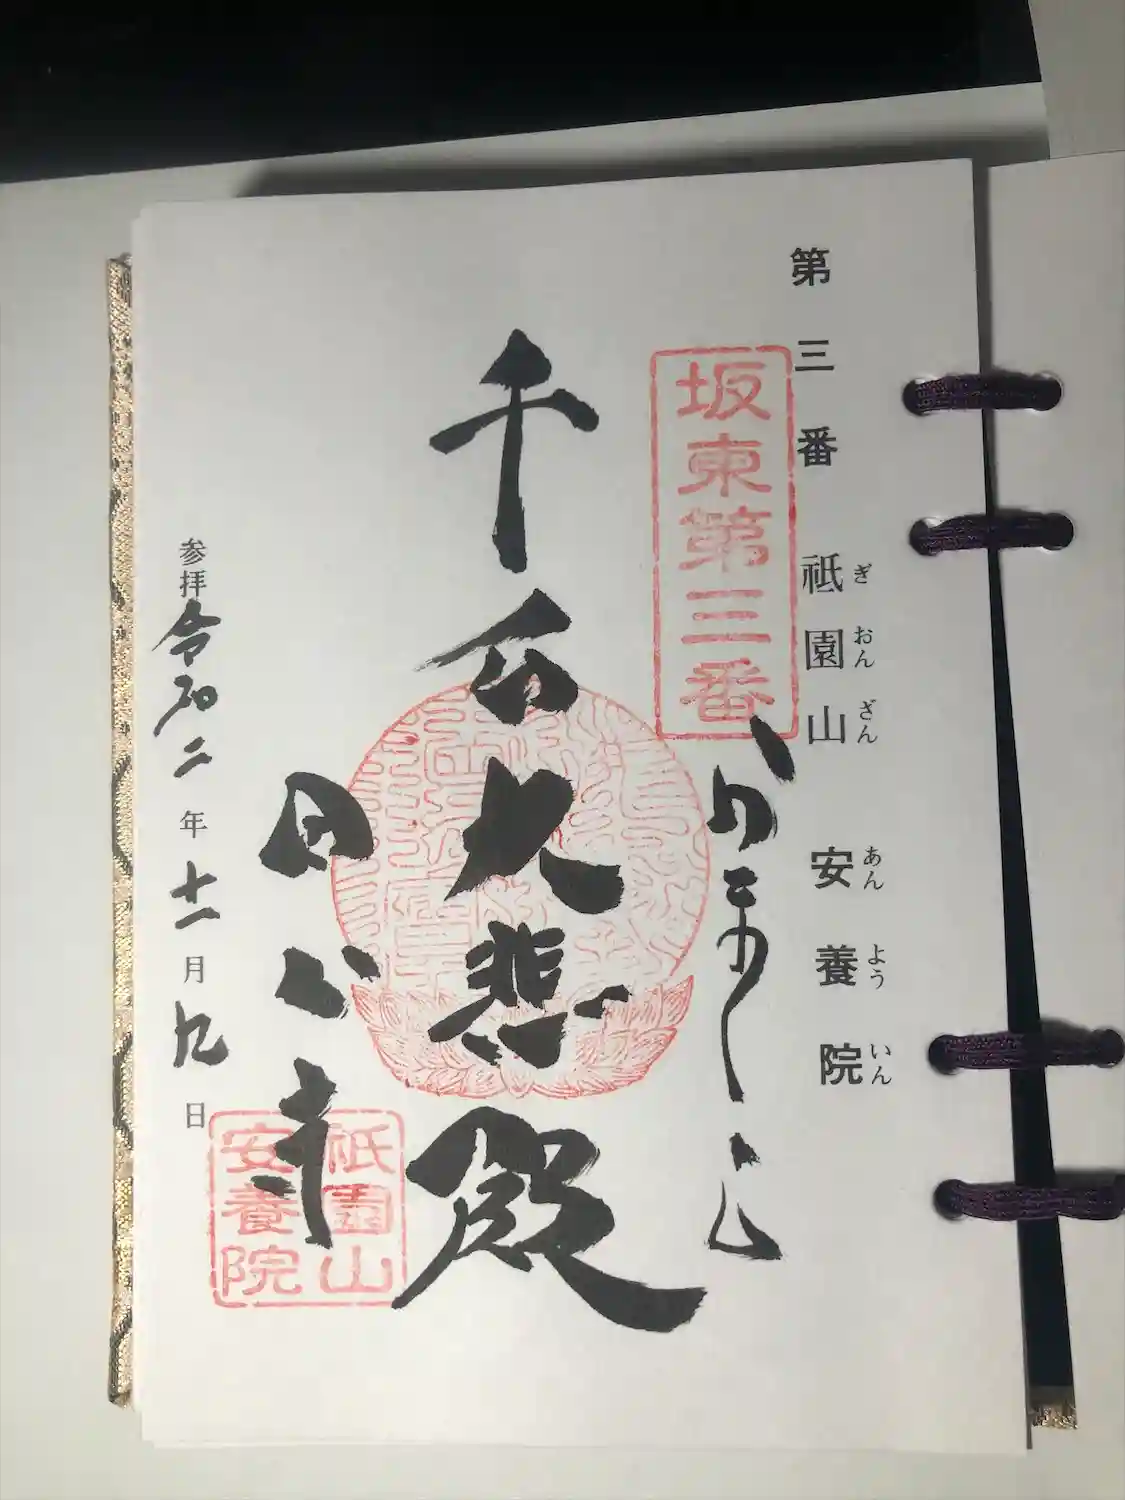 第三番 祇園山 安養院
ぎ おん ざん あん よう いん
坂東第三番
かまくら
千手大悲殿
田代寺
祇園山
安養院
参拝令和二年十一月九日